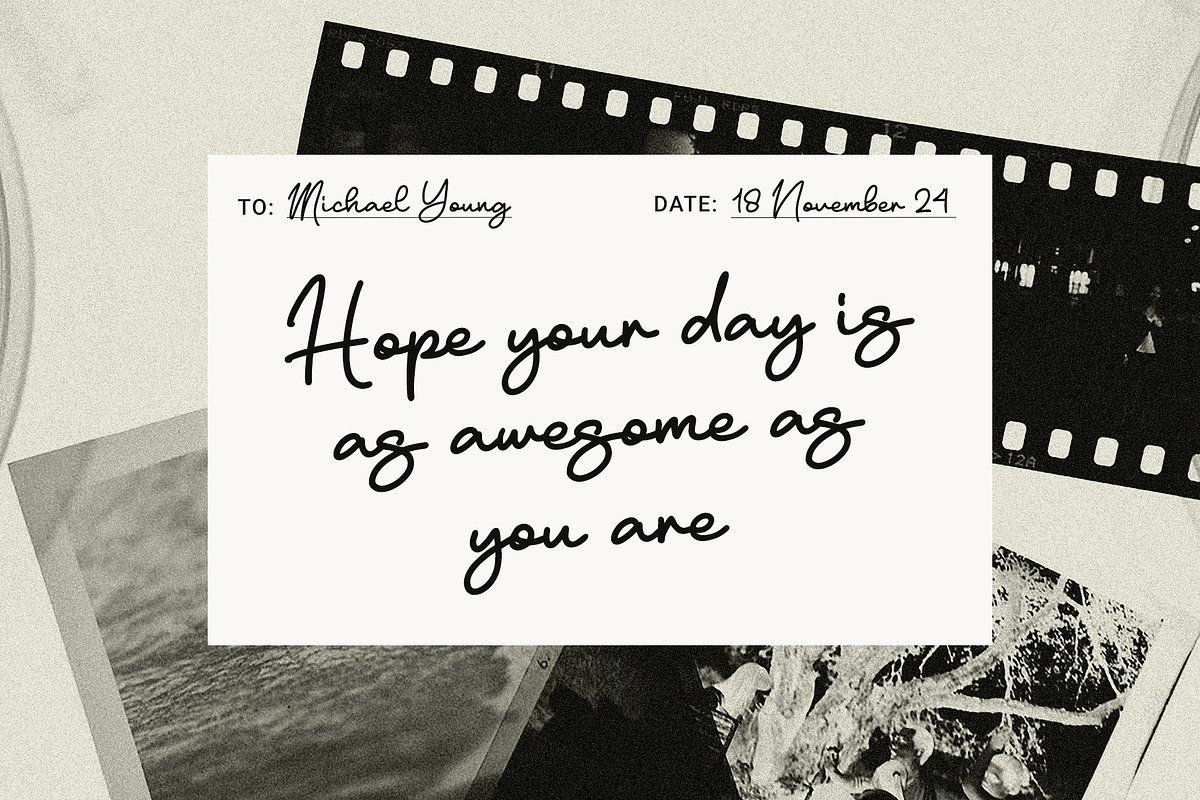 TO: Michael Young
DATE: 18 November 24
Hope your day is
as awesome as
you are
11
12
>12A